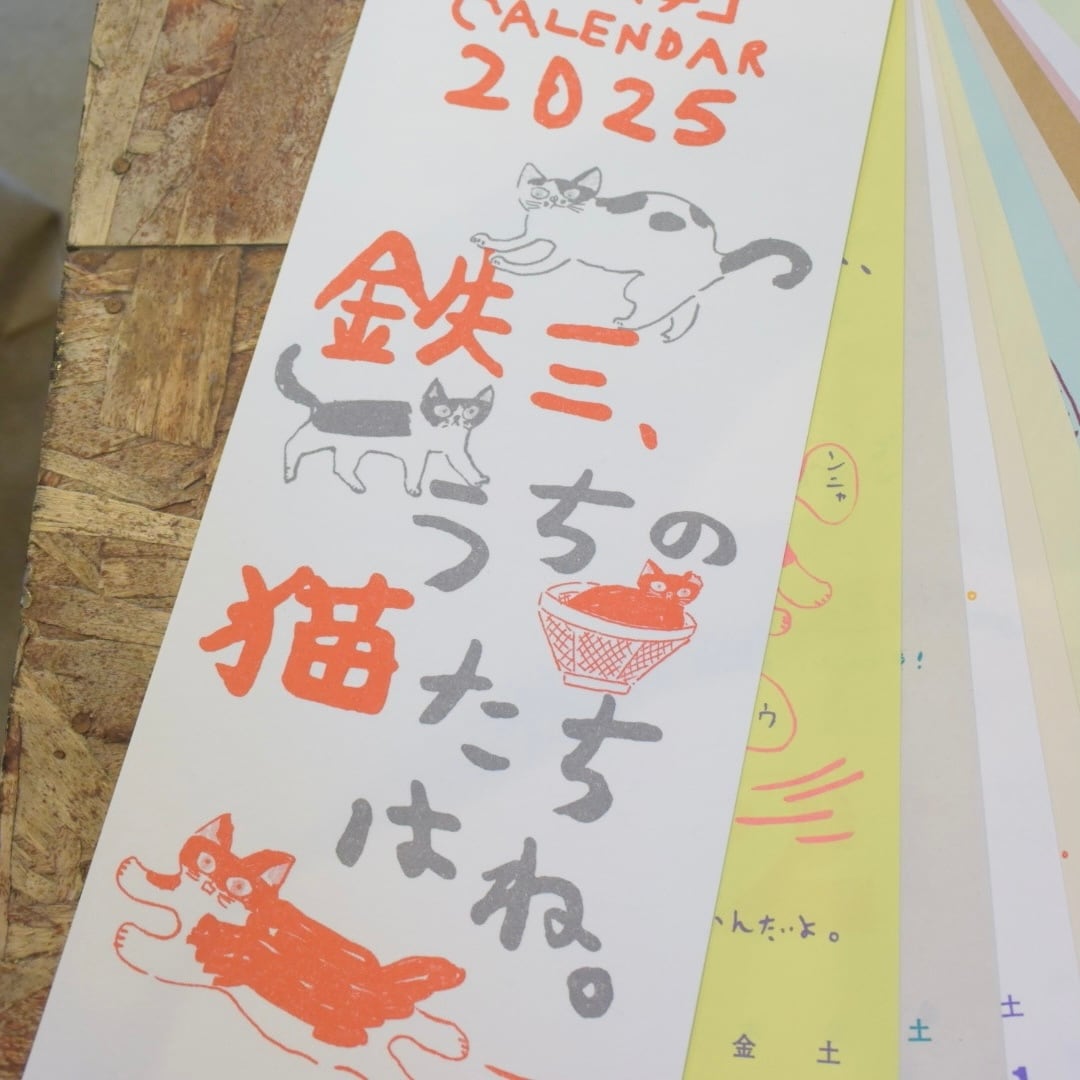 CALENDAR
2025
鉄三、
うちの
猫たち
はね。
ンニャ
ウ
んたいよ。
金 土
土
土
1